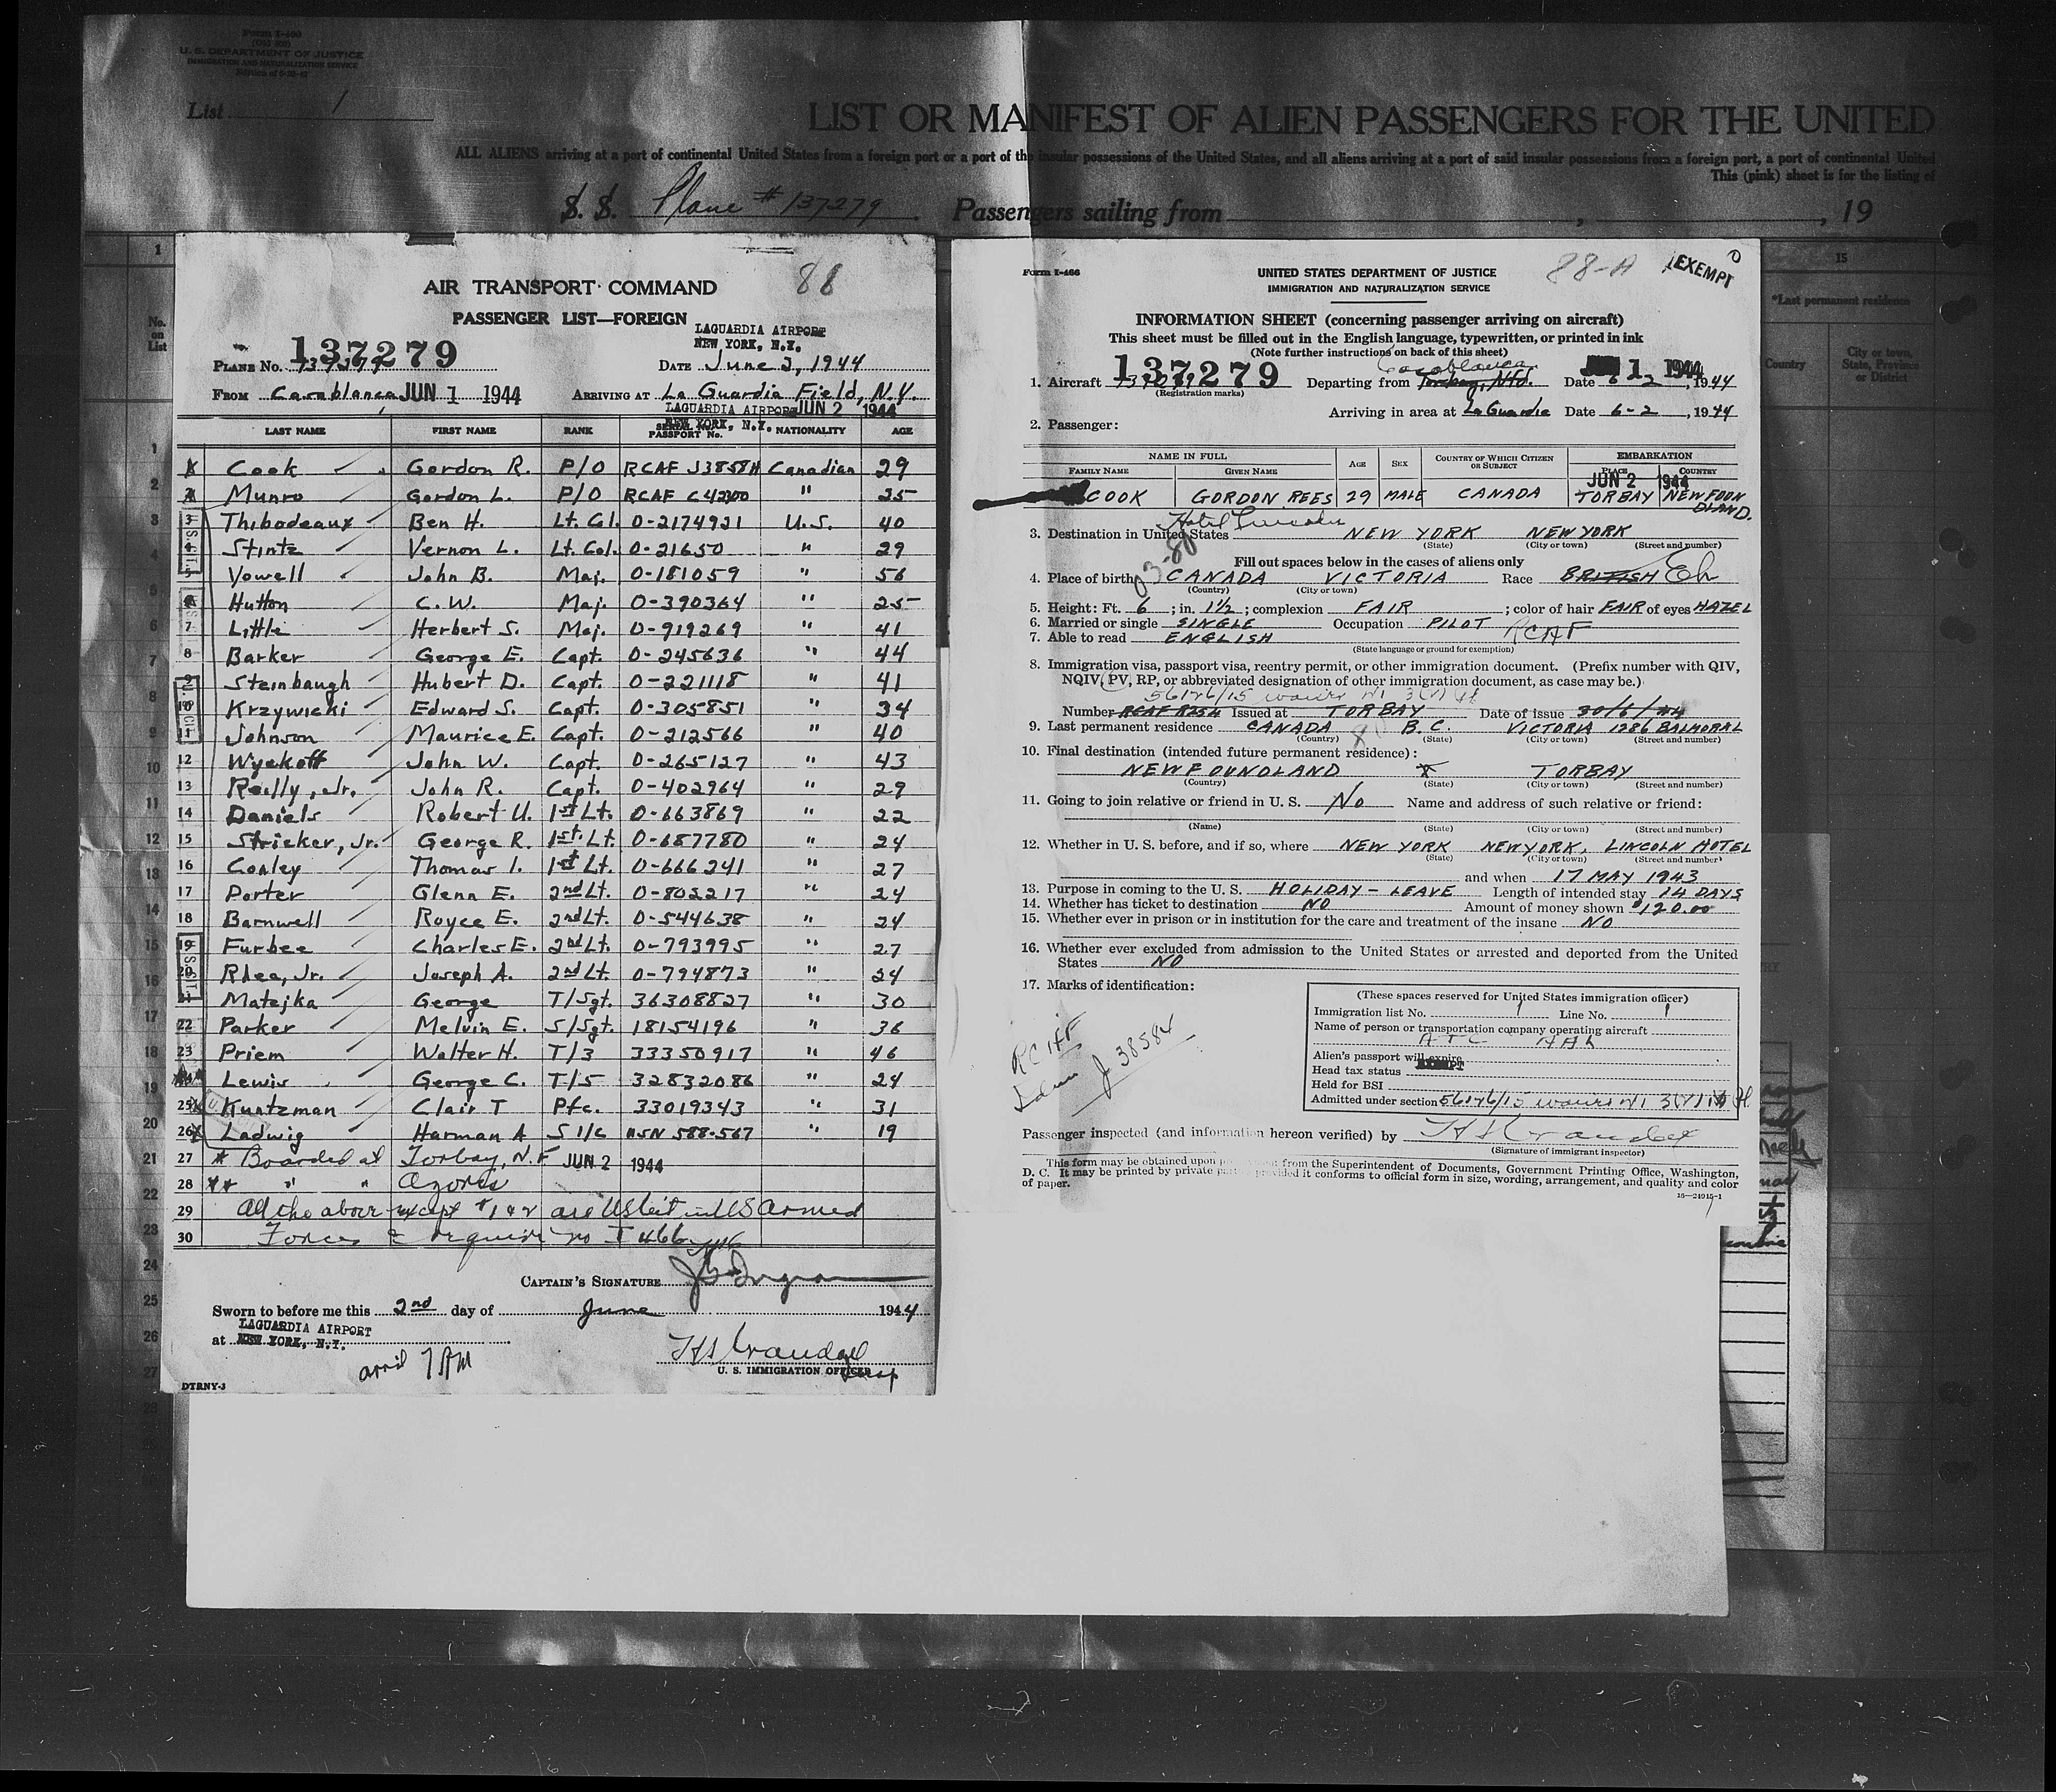 Form I-466
U. S. DEPARTMENT OF JUSTICE
IMMIGRATION AND NATURALIZATION SERVICE
List 1
LIST OR MANIFEST OF ALIEN PASSENGERS FOR THE UNITED
ALL ALIENS arriving at a port of continental United States from a foreign port or a port of the insular possessions of the United States, and all aliens arriving at a port of said insular possessions from a foreign port, a port of continental United
This (pink) sheet is for the listing of
S. S. Plane # 137279 Passengers sailing from , , 19
AIR TRANSPORT COMMAND 88
PASSENGER LIST—FOREIGN
LAGUARDIA AIRPORT
NEW YORK, N.Y.
PLANE NO. 137279 DATE June 2, 1944
FROM Casablanca JUN 1 1944 ARRIVING AT La Guardia Field, N.Y.
LAGUARDIA AIRPORT JUN 2 1944
NEW YORK, N.Y.
LAST NAME FIRST NAME RANK PASSPORT No. NATIONALITY AGE
Cook Gordon R. P/O RCAF J38584 Canadian 29
Munro Gordon L. P/O RCAF C42300 " 25
3 Thibodeaux Ben H. Lt. Col. O-2174921 U.S. 40
4 Stintz Vernon L. Lt. Col. O-21650 " 29
5 Vowell John B. Maj. O-181059 " 56
6 Hutton C. W. Maj. O-390364 " 25
7 Little Herbert S. Maj. O-919269 " 41
8 Barker George E. Capt. O-245636 " 44
9 Steinbaugh Hubert D. Capt. O-221118 " 41
10 Krzywicki Edward S. Capt. O-305851 " 34
11 Johnson Maurice E. Capt. O-212566 " 40
12 Wyckoff John W. Capt. O-265127 " 43
13 Reilly, Jr. John R. Capt. O-402964 " 29
14 Daniels Robert U. 1st Lt. O-663869 " 22
15 Stricker, Jr. George R. 1st. Lt. O-687780 " 24
16 Conley Thomas I. 1st Lt. O-666241 " 27
17 Porter Glenn E. 2nd Lt. O-802217 " 24
18 Barnwell Royce E. 2nd Lt. O-544638 " 24
19 Furbee Charles E. 2nd Lt. O-793995 " 27
20 Rhea, Jr. Joseph A. 2nd Lt. O-794873 " 24
Matejka George T/Sgt. 36308827 " 30
22 Parker Melvin E. S/Sgt. 18154196 " 36
23 Priem Walter H. T/3 33350917 " 46
Lewis George C. T/5 32832086 " 24
25 Kuntzman Clair T Pfc. 33019343 " 31
26 Ladwig Harman A S 1/c USN 588-567 " 19
27 * Boarded at Torbay, N.F JUN 2 1944
28 ** " " Azores
29 All the above except #1 & 2 are US Cit in US Armed
30 Forces & require no I 466
CAPTAIN'S SIGNATURE
Sworn to before me this 2nd day of June 1944
at LAGUARDIA AIRPORT
NEW YORK, N.Y.
U. S. IMMIGRATION OFFICER
7 AM
DTRNY-3
Form I-466 UNITED STATES DEPARTMENT OF JUSTICE 88-A EXEMPT
IMMIGRATION AND NATURALIZATION SERVICE
INFORMATION SHEET (concerning passenger arriving on aircraft)
This sheet must be filled out in the English language, typewritten, or printed in ink
(Note further instructions on back of this sheet)
1. Aircraft 137279 Departing from Casablanca Torbay, Nfd. Date 6-2, 1944
(Registration marks)
Arriving in area at La Guardia Date 6-2, 1944
2. Passenger:
NAME IN FULL AGE SEX COUNTRY OF WHICH CITIZEN OR SUBJECT EMBARKATION
FAMILY NAME GIVEN NAME PLACE COUNTRY
JUN 2 1944
COOK GORDON REES 29 MALE CANADA TORBAY NEWFOUNDLAND.
Hotel Lincoln
3. Destination in United States NEW YORK NEW YORK
(State) (City or town) (Street and number)
Fill out spaces below in the cases of aliens only
4. Place of birth CANADA VICTORIA Race BRITISH
(Country) (City or town)
5. Height: Ft. 6; in. 1½; complexion FAIR; color of hair FAIR of eyes HAZEL
6. Married or single SINGLE Occupation PILOT RCAF
7. Able to read ENGLISH
(State language or ground for exemption)
8. Immigration visa, passport visa, reentry permit, or other immigration document. (Prefix number with QIV,
NQIV, PV, RP, or abbreviated designation of other immigration document, as case may be.)
Number Issued at TORBAY Date of issue 30/6/44
9. Last permanent residence CANADA B.C. VICTORIA 1286 BALMORAL
(Country) (State) (City or town) (Street and number)
10. Final destination (intended future permanent residence):
NEWFOUNDLAND TORBAY
(Country) (State) (City or town) (Street and number)
11. Going to join relative or friend in U. S. No Name and address of such relative or friend:
(Name) (State) (City or town) (Street and number)
12. Whether in U. S. before, and if so, where NEW YORK NEW YORK, LINCOLN HOTEL
(State) (City or town) (Street and number)
and when 17 MAY 1943
13. Purpose in coming to the U. S. HOLIDAY - LEAVE Length of intended stay 14 DAYS
14. Whether has ticket to destination NO Amount of money shown $120.00
15. Whether ever in prison or in institution for the care and treatment of the insane NO
16. Whether ever excluded from admission to the United States or arrested and deported from the United
States NO
17. Marks of identification:
RCAF
J 38584
(These spaces reserved for United States immigration officer)
Immigration list No. 1 Line No. 1
Name of person or transportation company operating aircraft
ATC
Alien's passport will expire
Head tax status EXEMPT
Held for BSI
Admitted under section
Passenger inspected (and information hereon verified) by
(Signature of immigrant inspector)
This form may be obtained upon from the Superintendent of Documents, Government Printing Office, Washington,
D. C. It may be printed by private provided it conforms to official form in size, wording, arrangement, and quality and color
of paper.
15
*Last permanent residence
Country City or town, State, Province or District
No. on List